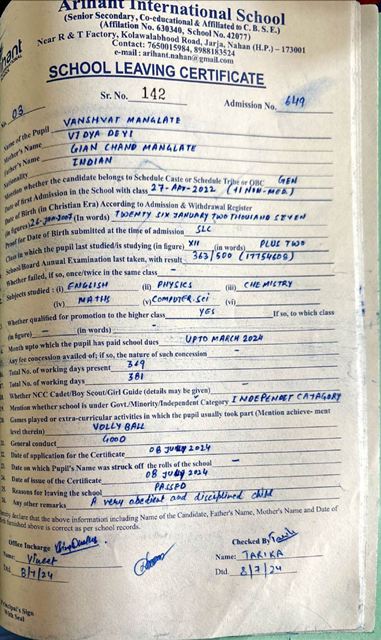 Arihant International School
(Senior Secondary, Co-educational & Affiliated to C. B. S. E.)
(Affiliation No. 630340, School No. 42077)
Near R & T Factory, Kolawalabhood Road, Jarja, Nahan (H.P.) – 173001
Contact: 7650015984, 8988183524
e-mail : arihant.nahan@gmail.com
SCHOOL LEAVING CERTIFICATE
Sr. No. 142
Admission No. 649
03
Name of the Pupil VANSHVAT MANGLATE
Mother's Name VIDYA DEVI
Father's Name GIAN CHAND MANGLATE
Nationality INDIAN
Mention whether the candidate belongs to Schedule Caste or Schedule Tribe or OBC GEN
Date of first Admission in the School with class 27-Apr-2022 (+1 NON-MED.)
Date of Birth (in Christian Era) According to Admission & Withdrawal Register
(in figures) 26-Jan-2007 (In words) TWENTY SIX JANUARY TWO THOUSAND SEVEN
Proof for Date of Birth submitted at the time of admission SLC
Class in which the pupil last studied/is studying (in figure) XII (in words) PLUS TWO
School/Board Annual Examination last taken, with result 363/500 (17754608)
Whether failed, if so, once/twice in the same class –
Subjects studied : (i) ENGLISH (ii) PHYSICS (iii) CHEMISTRY
(iv) MATHS (v) COMPUTER.Sci (vi)
Whether qualified for promotion to the higher class YES If so, to which class
(in figure) – (in words) –
Month upto which the pupil has paid school dues UPTO MARCH 2024
Any fee concession availed of; if so, the nature of such concession –
Total No. of working days present 369
Total No. of working days 381
Whether NCC Cadet/Boy Scout/Girl Guide (details may be given) –
Mention whether school is under Govt./Minority/Independent Category INDEPENDET CATAGORY
Games played or extra-curricular activities in which the pupil usually took part (Mention achieve- ment
level therein) VOLLY BALL
General conduct GOOD
Date of application for the Certificate 08 JULY 2024
Date on which Pupil's Name was struck off the rolls of the school –
Date of issue of the Certificate 08 JULY 2024
Reasons for leaving the school PASSED
Any other remarks A very obedient and disciplined child
declare that the above information including Name of the Candidate, Father's Name, Mother's Name and Date of
furnished above is correct as per school records.
Office Incharge
Checked By
Name: Vineet
Name: TARIKA
Dtd. 8/7/24
Dtd. 8/7/24
Principal's Sign
With Seal